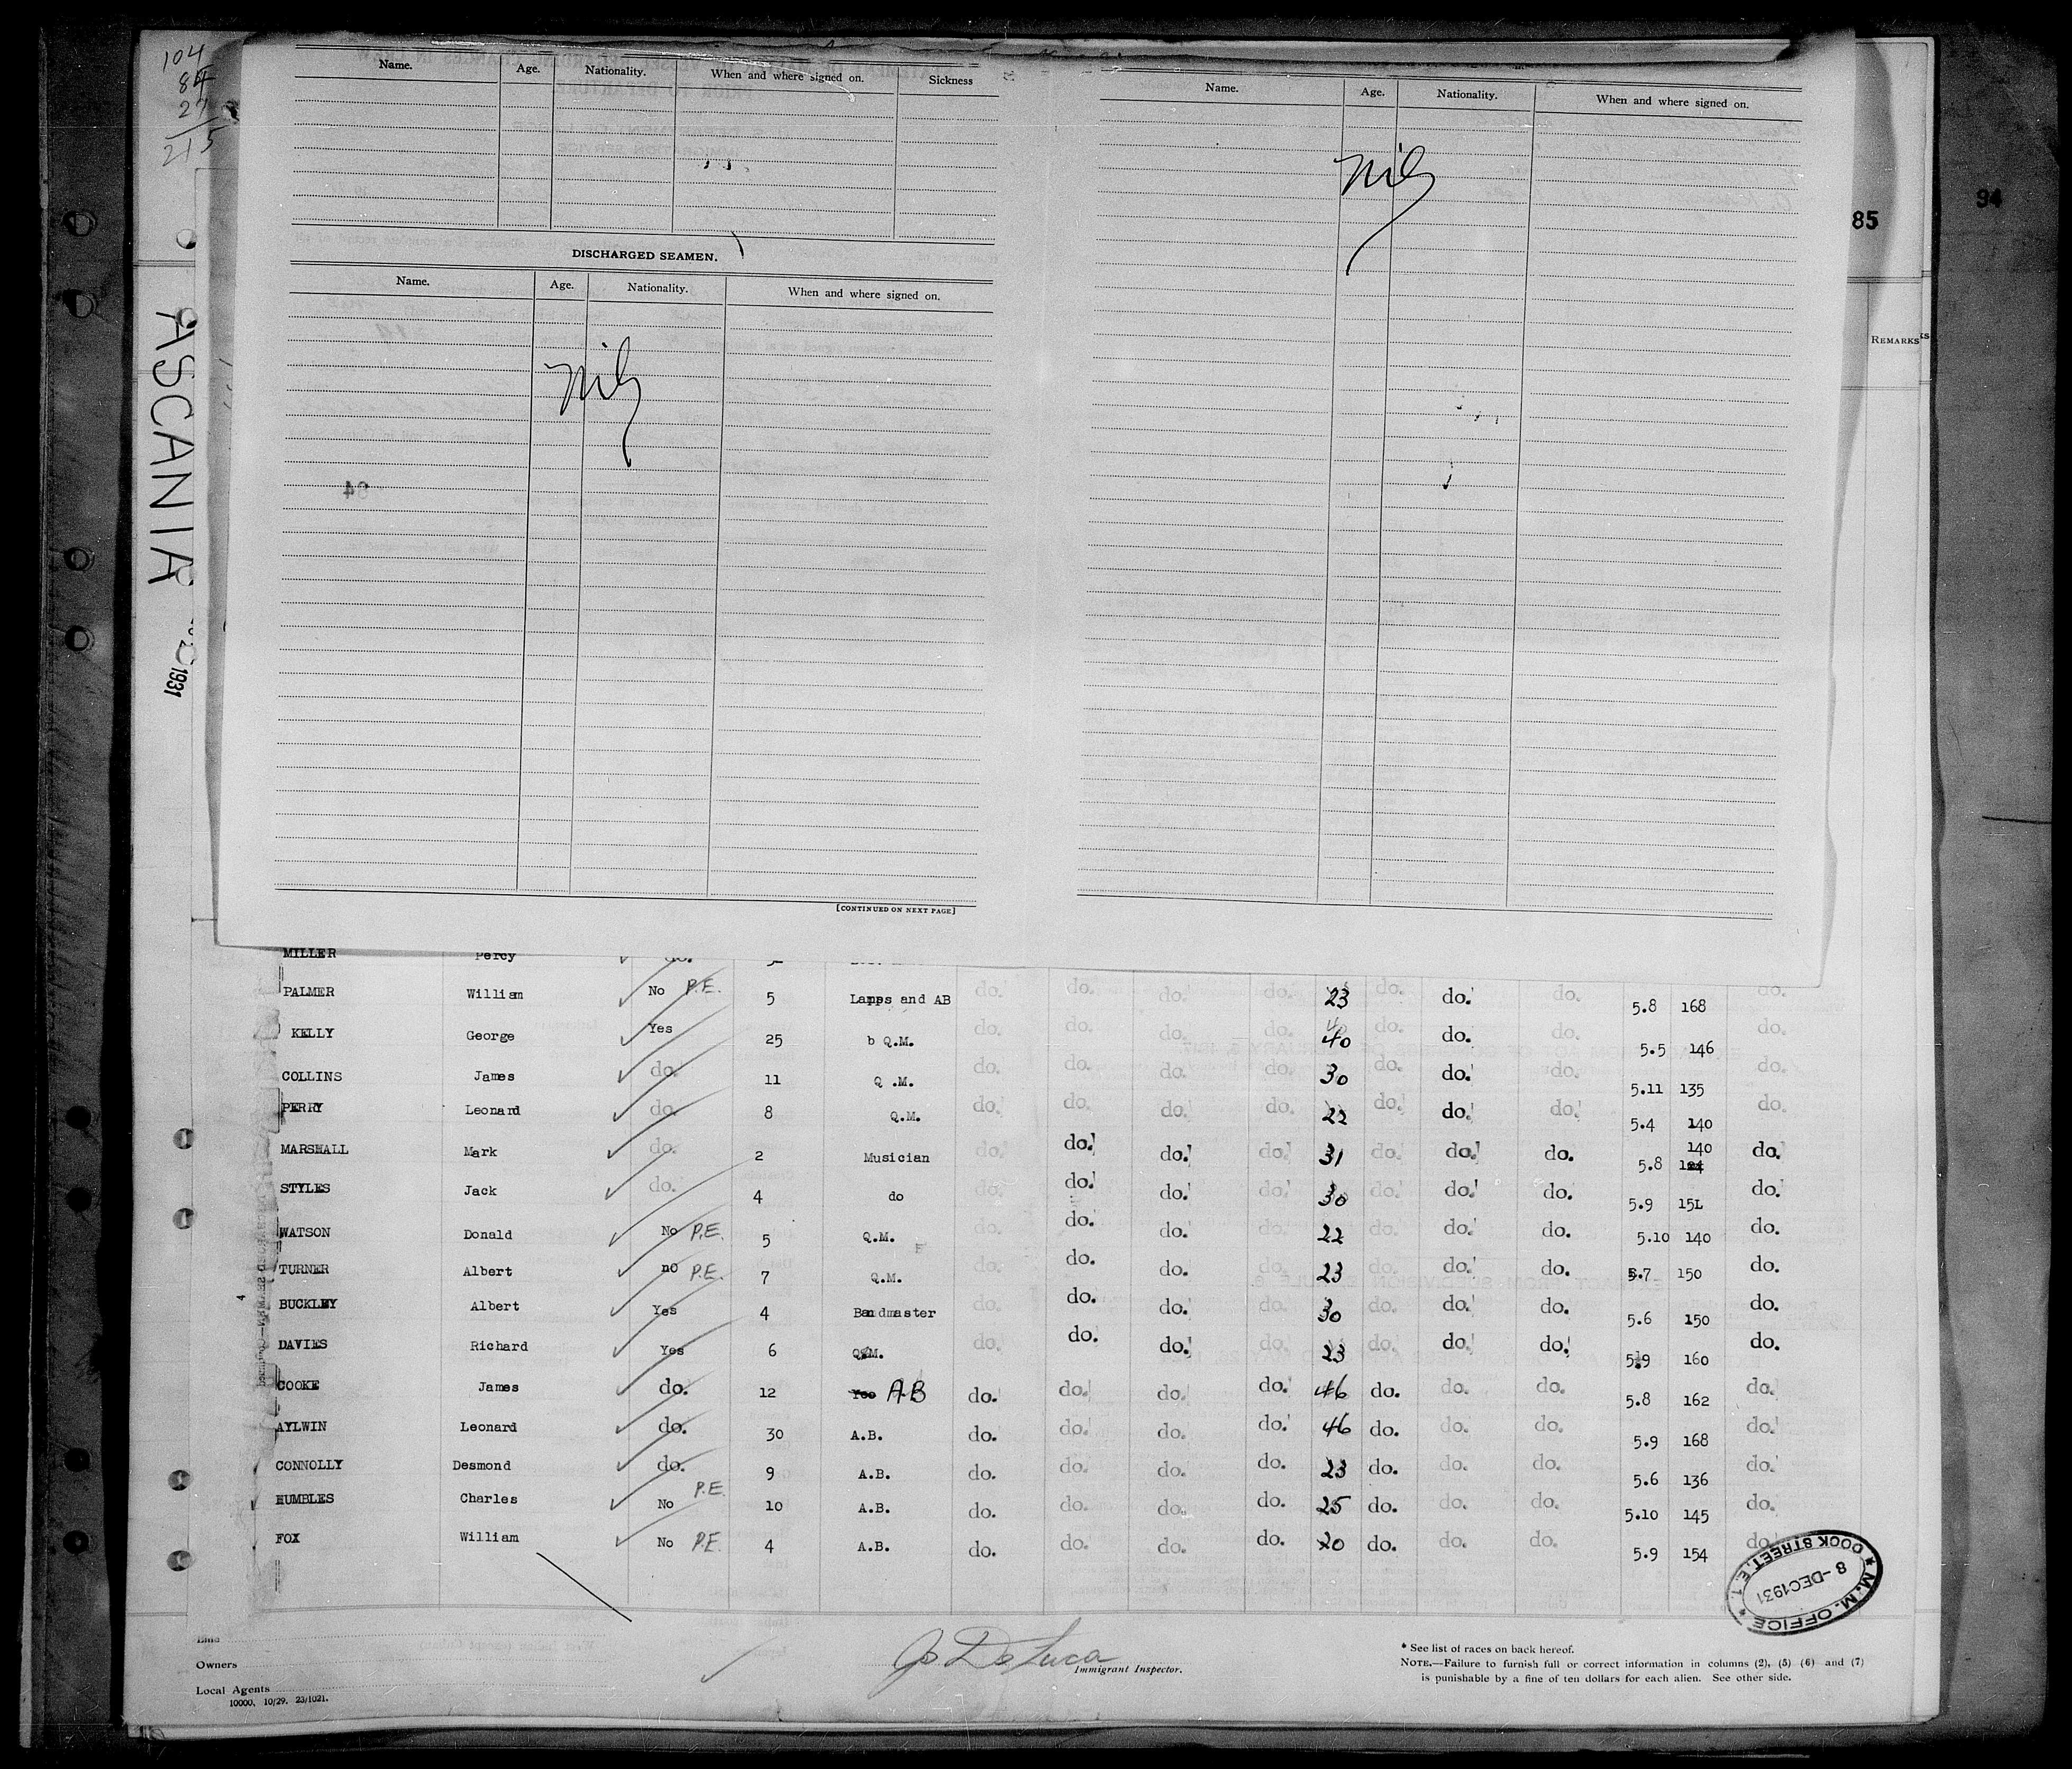 104
84
27
215
ASCANIA
1931
94
85
REMARKS
Name. Age. Nationality. When and where signed on. Sickness
DISCHARGED SEAMEN.
Name. Age. Nationality. When and where signed on.
Nil
[CONTINUED ON NEXT PAGE]
Name. Age. Nationality. When and where signed on.
Nil
MILLER Percy do.
PALMER William No P.E. 5 Lamps and AB do. do. do. do. 23 do. do. do. 5.8 168 do.
KELLY George Yes 25 b Q.M. do. do. do. do. 40 do. do. do. 5.5 146 do.
COLLINS James do. 11 Q .M. do. do. do. do. 30 do. do. do. 5.11 135 do.
PERRY Leonard do. 8 Q.M. do. do. do. do. 22 do. do. do. 5.4 140 do.
MARSHALL Mark do. 2 Musician do. do. do. do. 31 do. do. do. 5.8 140 do.
STYLES Jack do. 4 do do. do. do. do. 30 do. do. do. 5.9 15L do.
WATSON Donald No P.E. 5 Q.M. do. do. do. do. 22 do. do. do. 5.10 140 do.
TURNER Albert no P.E. 7 Q.M. do. do. do. do. 23 do. do. do. 5.7 150 do.
BUCKLEY Albert Yes 4 Bandmaster do. do. do. do. 30 do. do. do. 5.6 150 do.
DAVIES Richard Yes 6 Q.M. do. do. do. do. 23 do. do. do. 5.9 160 do.
COOKE James do. 12 A.B do. do. do. do. 46 do. do. do. 5.8 162 do.
AYLWIN Leonard do. 30 A.B. do. do. do. do. 46 do. do. do. 5.9 168 do.
CONNOLLY Desmond do. 9 A.B. do. do. do. do. 23 do. do. do. 5.6 136 do.
HUMBLES Charles No P.E. 10 A.B. do. do. do. do. 25 do. do. do. 5.10 145 do.
FOX William No P.E. 4 A.B. do. do. do. do. 20 do. do. do. 5.9 154 do.
M.M. OFFICE
8 - DEC 1931
DOCK STREET. E.1.
Line
Owners
Local Agents
10000, 10/29. 23/1021.
Jo De Luca
Immigrant Inspector.
* See list of races on back hereof.
NOTE.—Failure to furnish full or correct information in columns (2), (5) (6) and (7)
is punishable by a fine of ten dollars for each alien. See other side.